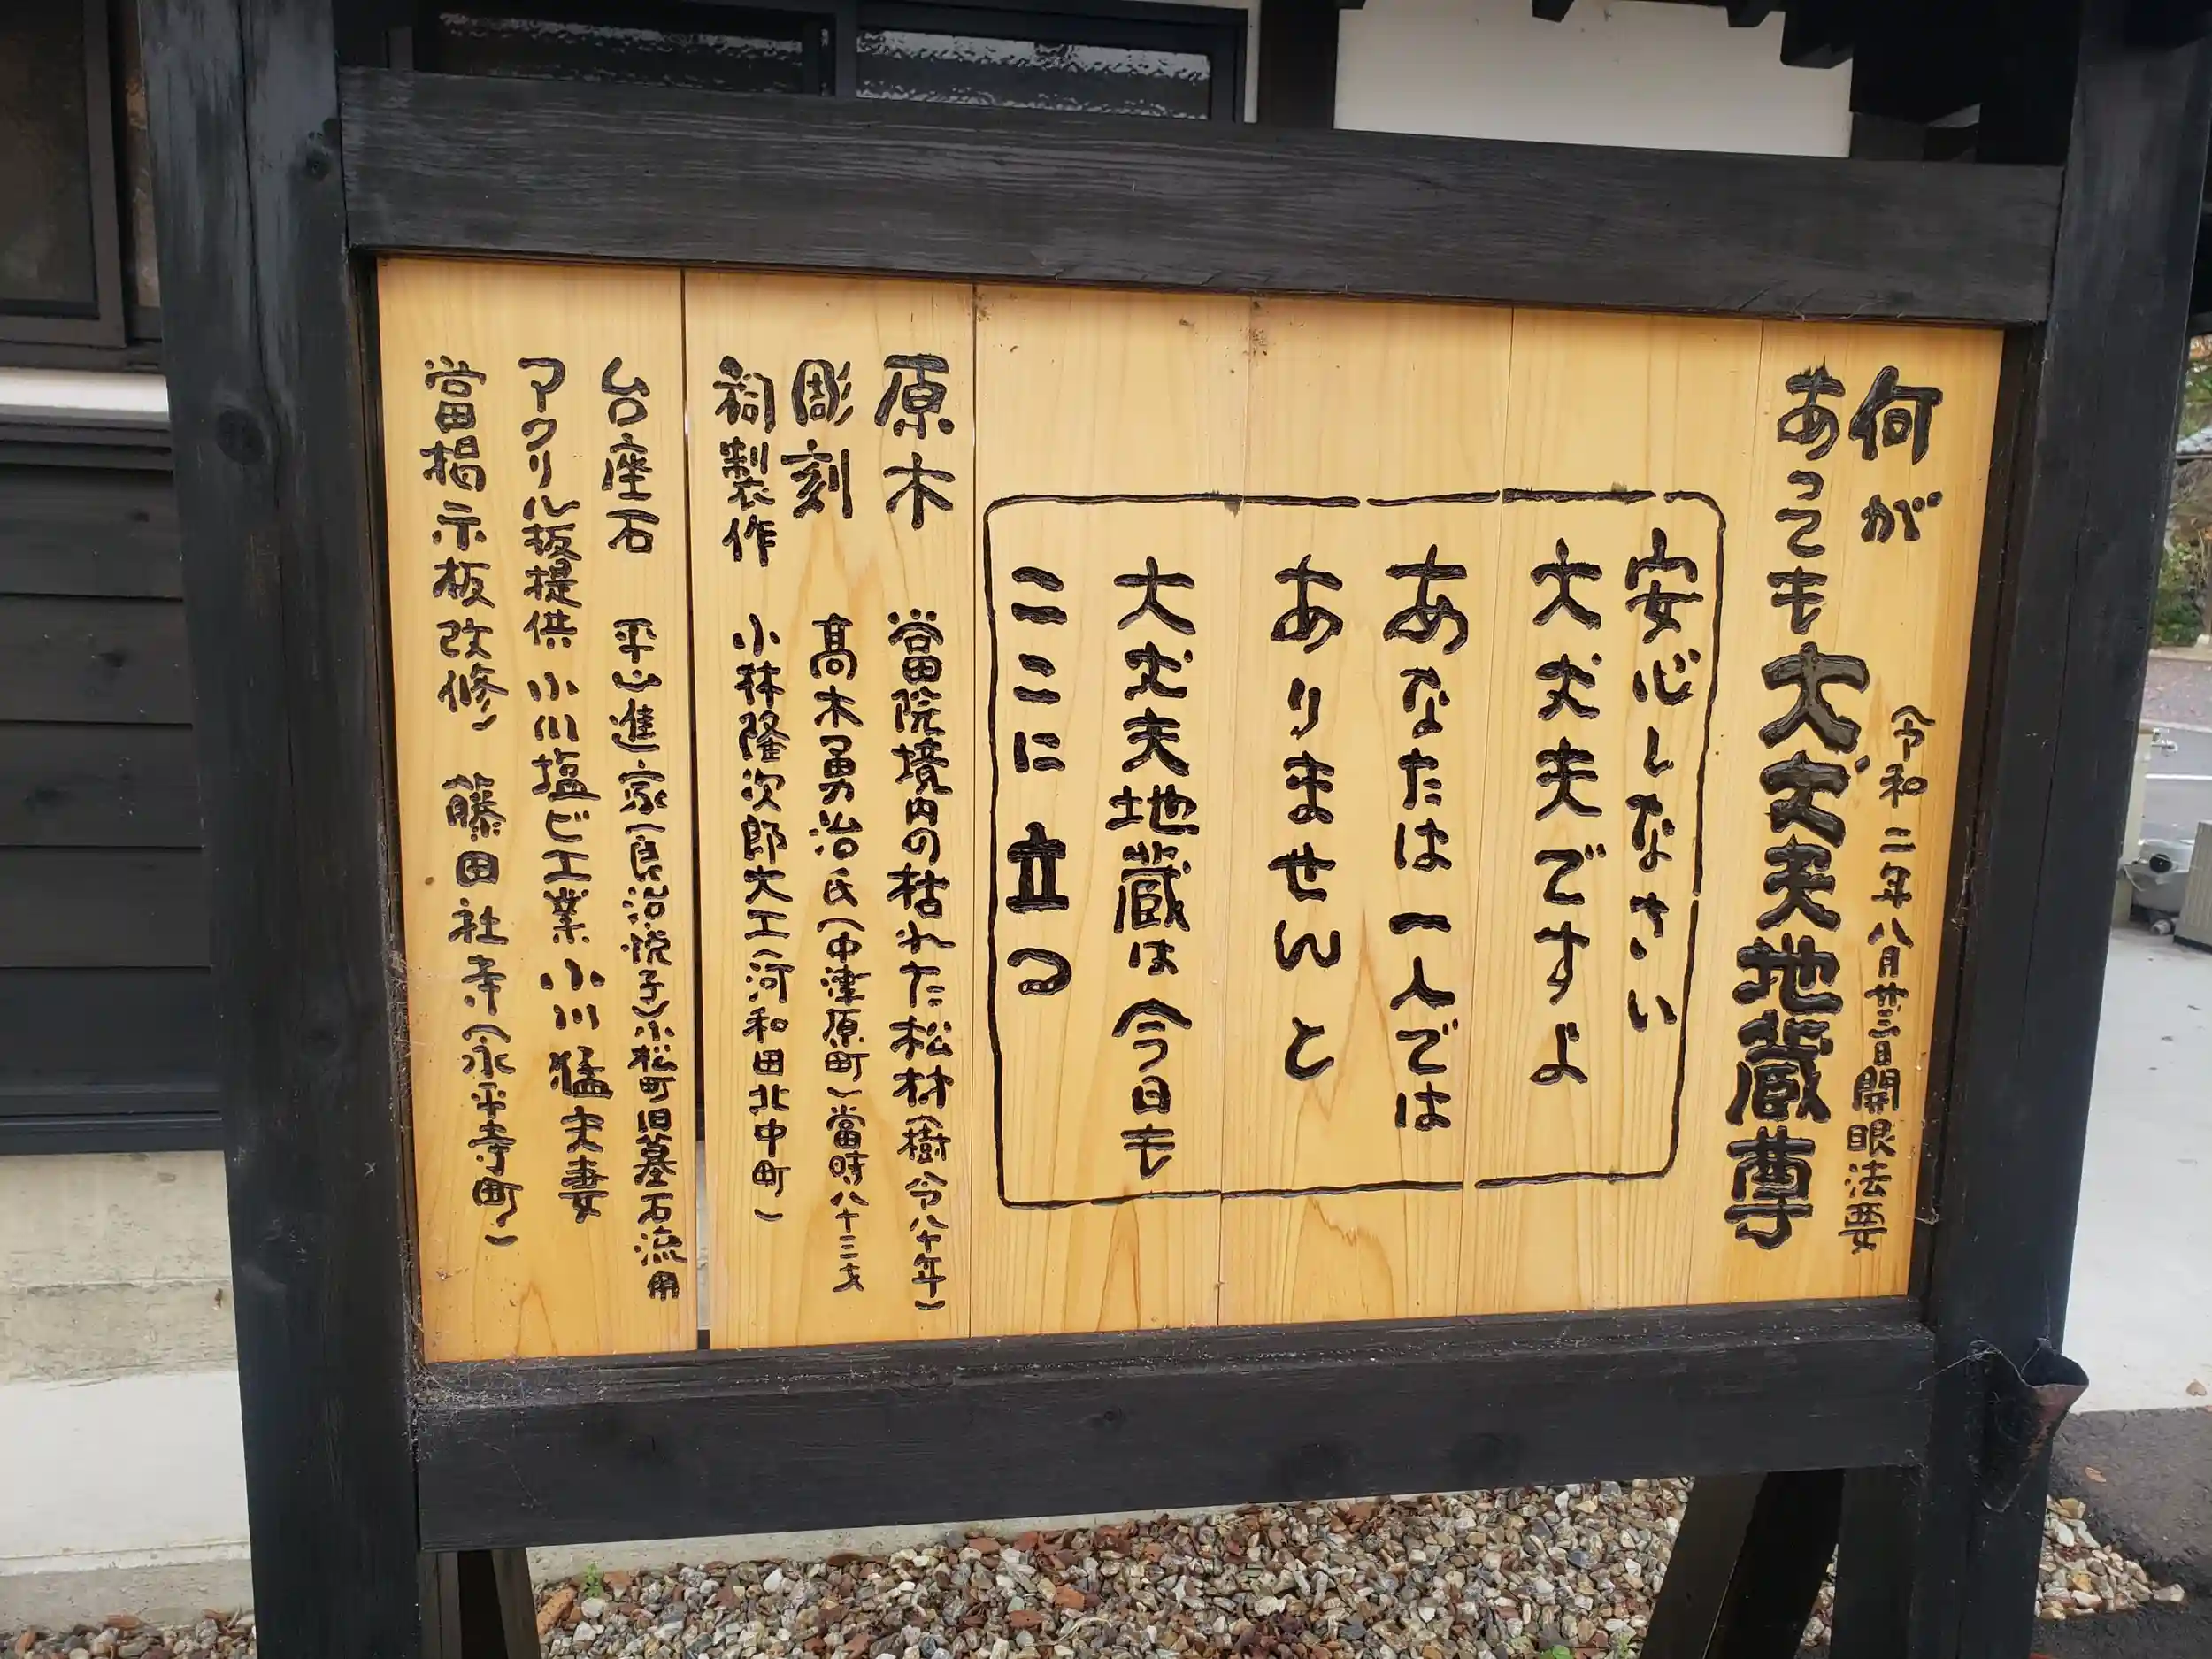 何が
あっても大丈夫地蔵尊
(令和二年八月廿三日開眼法要
安心しなさい
大丈夫ですよ
あなたは一人では
ありませんと
大丈夫地蔵は今日も
ここに立る
原木 當院境内の枯れた松材(樹令八十年)
彫刻 髙木勇治氏(中津原町)當時八十三才
祠製作 小林隆次郎大工(河和田北中町)
台座石 平山進家(良治悦子)小松町旧墓石流用
アクリル板提供 小川塩ビ工業小川猛夫妻
當掲示板改修 藤田社寺(永平寺町)